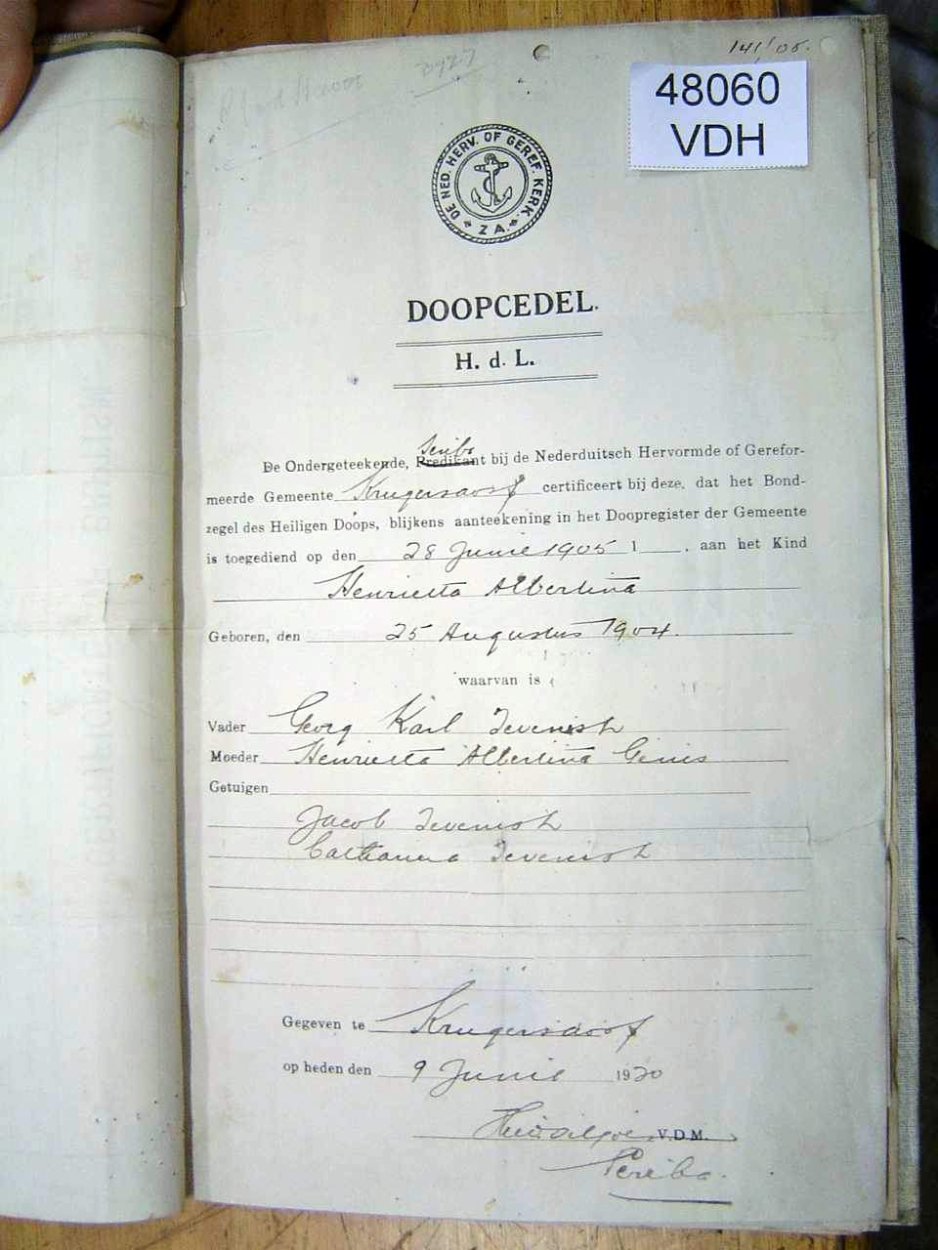 141/05.
48060
VDH
DE NED. HERV. OF GEREF. KERK. Z A.
DOOPCEDEL.
H. d. L.
Scriba
De Ondergeteekende, Predikant bij de Nederduitsch Hervormde of Gerefor-
meerde Gemeente Krugersdorp certificeert bij deze, dat het Bond-
zegel des Heiligen Doops, blijkens aanteekening in het Doopregister der Gemeente
is toegediend op den 28 Junie 1905 1 , aan het Kind
Henrietta Albertina
Geboren, den 25 Augustus 1904.
waarvan is
Vader Georg Karl Devenish
Moeder Henrietta Albertina Genis
Getuigen
Jacob Devenish
Catharina Devenish
Gegeven te Krugersdorp
op heden den 9 Junie 1920
V.D.M.
Scriba.